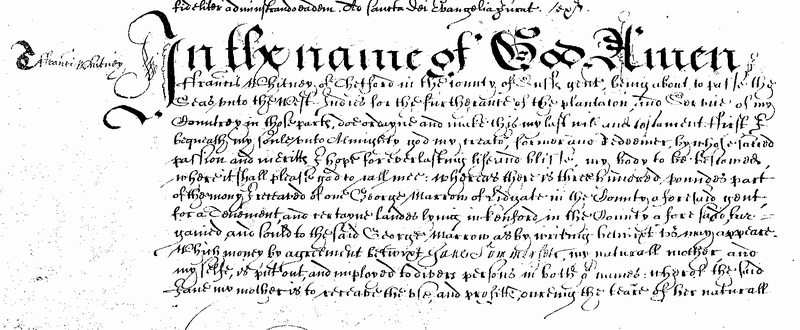 fideliter administrand eadem. Ad sancta dei Evangelia Jurat.
T ffranci Whitney
In the name of God Amen
ffrancis Whitney of Chetford in the County of gent, being about to passe the
Seas unto the West Indies for the furtherance of the plantaton, and Service of my
Countrey in those parts, doe ordayne and make this my last will and testament ffirst I
bequeath my soule unto Almighty god my Creator former and Redeemer, by whose sacred
passion and meritts I hope for everlasting life and blisse, my body to be bestowed
where it shall please god to call mee: whereas there is three hundred poundes part
of the mony I received of one George Marrow of Lidgate in the County aforesaid gent
for a Tenement and certayne landes lying in kenford in the County aforesaid bar=
gained and sould to the said George Marrow as by writing betwixt us may appeare.
Which money by agreement betwixt Jane Sommersett, my naturall mother and
my selfe, is put out, and imployed to divers persons in both o names wherof the said
Jane my mother is to receave the use, and profitt, during the tearme of her naturall